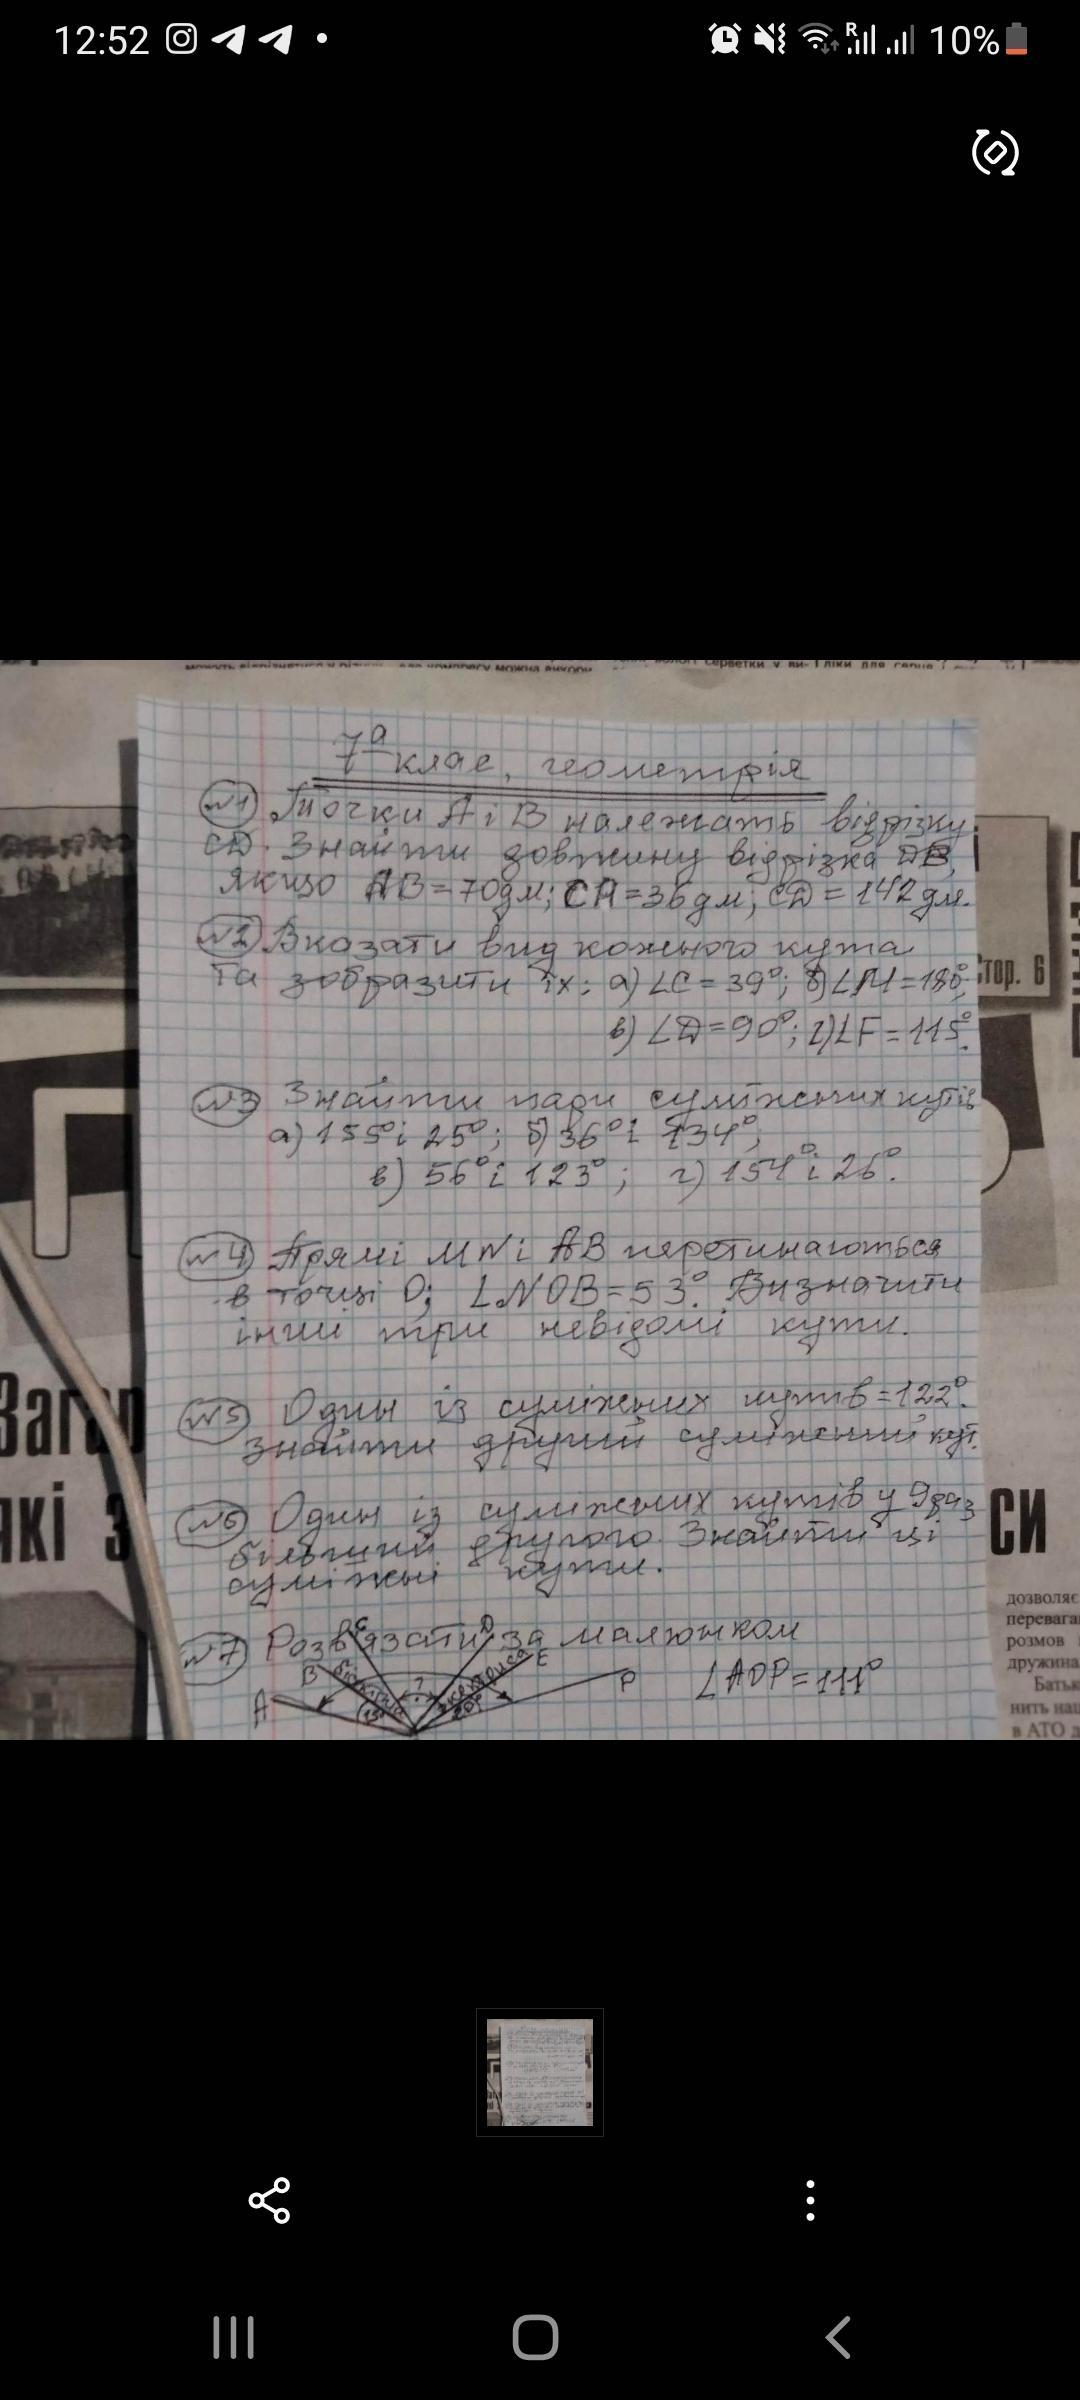 12:52
R
10%
7а клас, геометрія
№1 Точки А і В належать відрізку
CD. Знайти довжину відрізка DB,
якщо AB=70дм; CA=36дм; CD=142дм.
№2 Вказати вид кожного кута
та зобразити їх: а) ∠C=39°; б) ∠M=180°;
в) ∠D=90°; г) ∠F=115°.
№3 Знайти пари суміжних кутів
а) 155° і 25°; б) 36° і 134°;
в) 56° і 123°; г) 154° і 26°.
№4 Прямі MN і AB перетинаються
в точці О; ∠NOB=53°. Визначити
інші три невідомі кути.
№5 Один із суміжних кутів=122°.
Знайти другий суміжний кут.
№6 Один із суміжних кутів у 9 раз
більший другого. Знайти ці
суміжні кути.
№7 Розв'язати за малюнком
A B C D E P
?
∠AOP=111°
стор. 6
Загар
які з
СИ
дозволяє
перевага
розмов
дружина
Батьк
нить наш
в АТО д